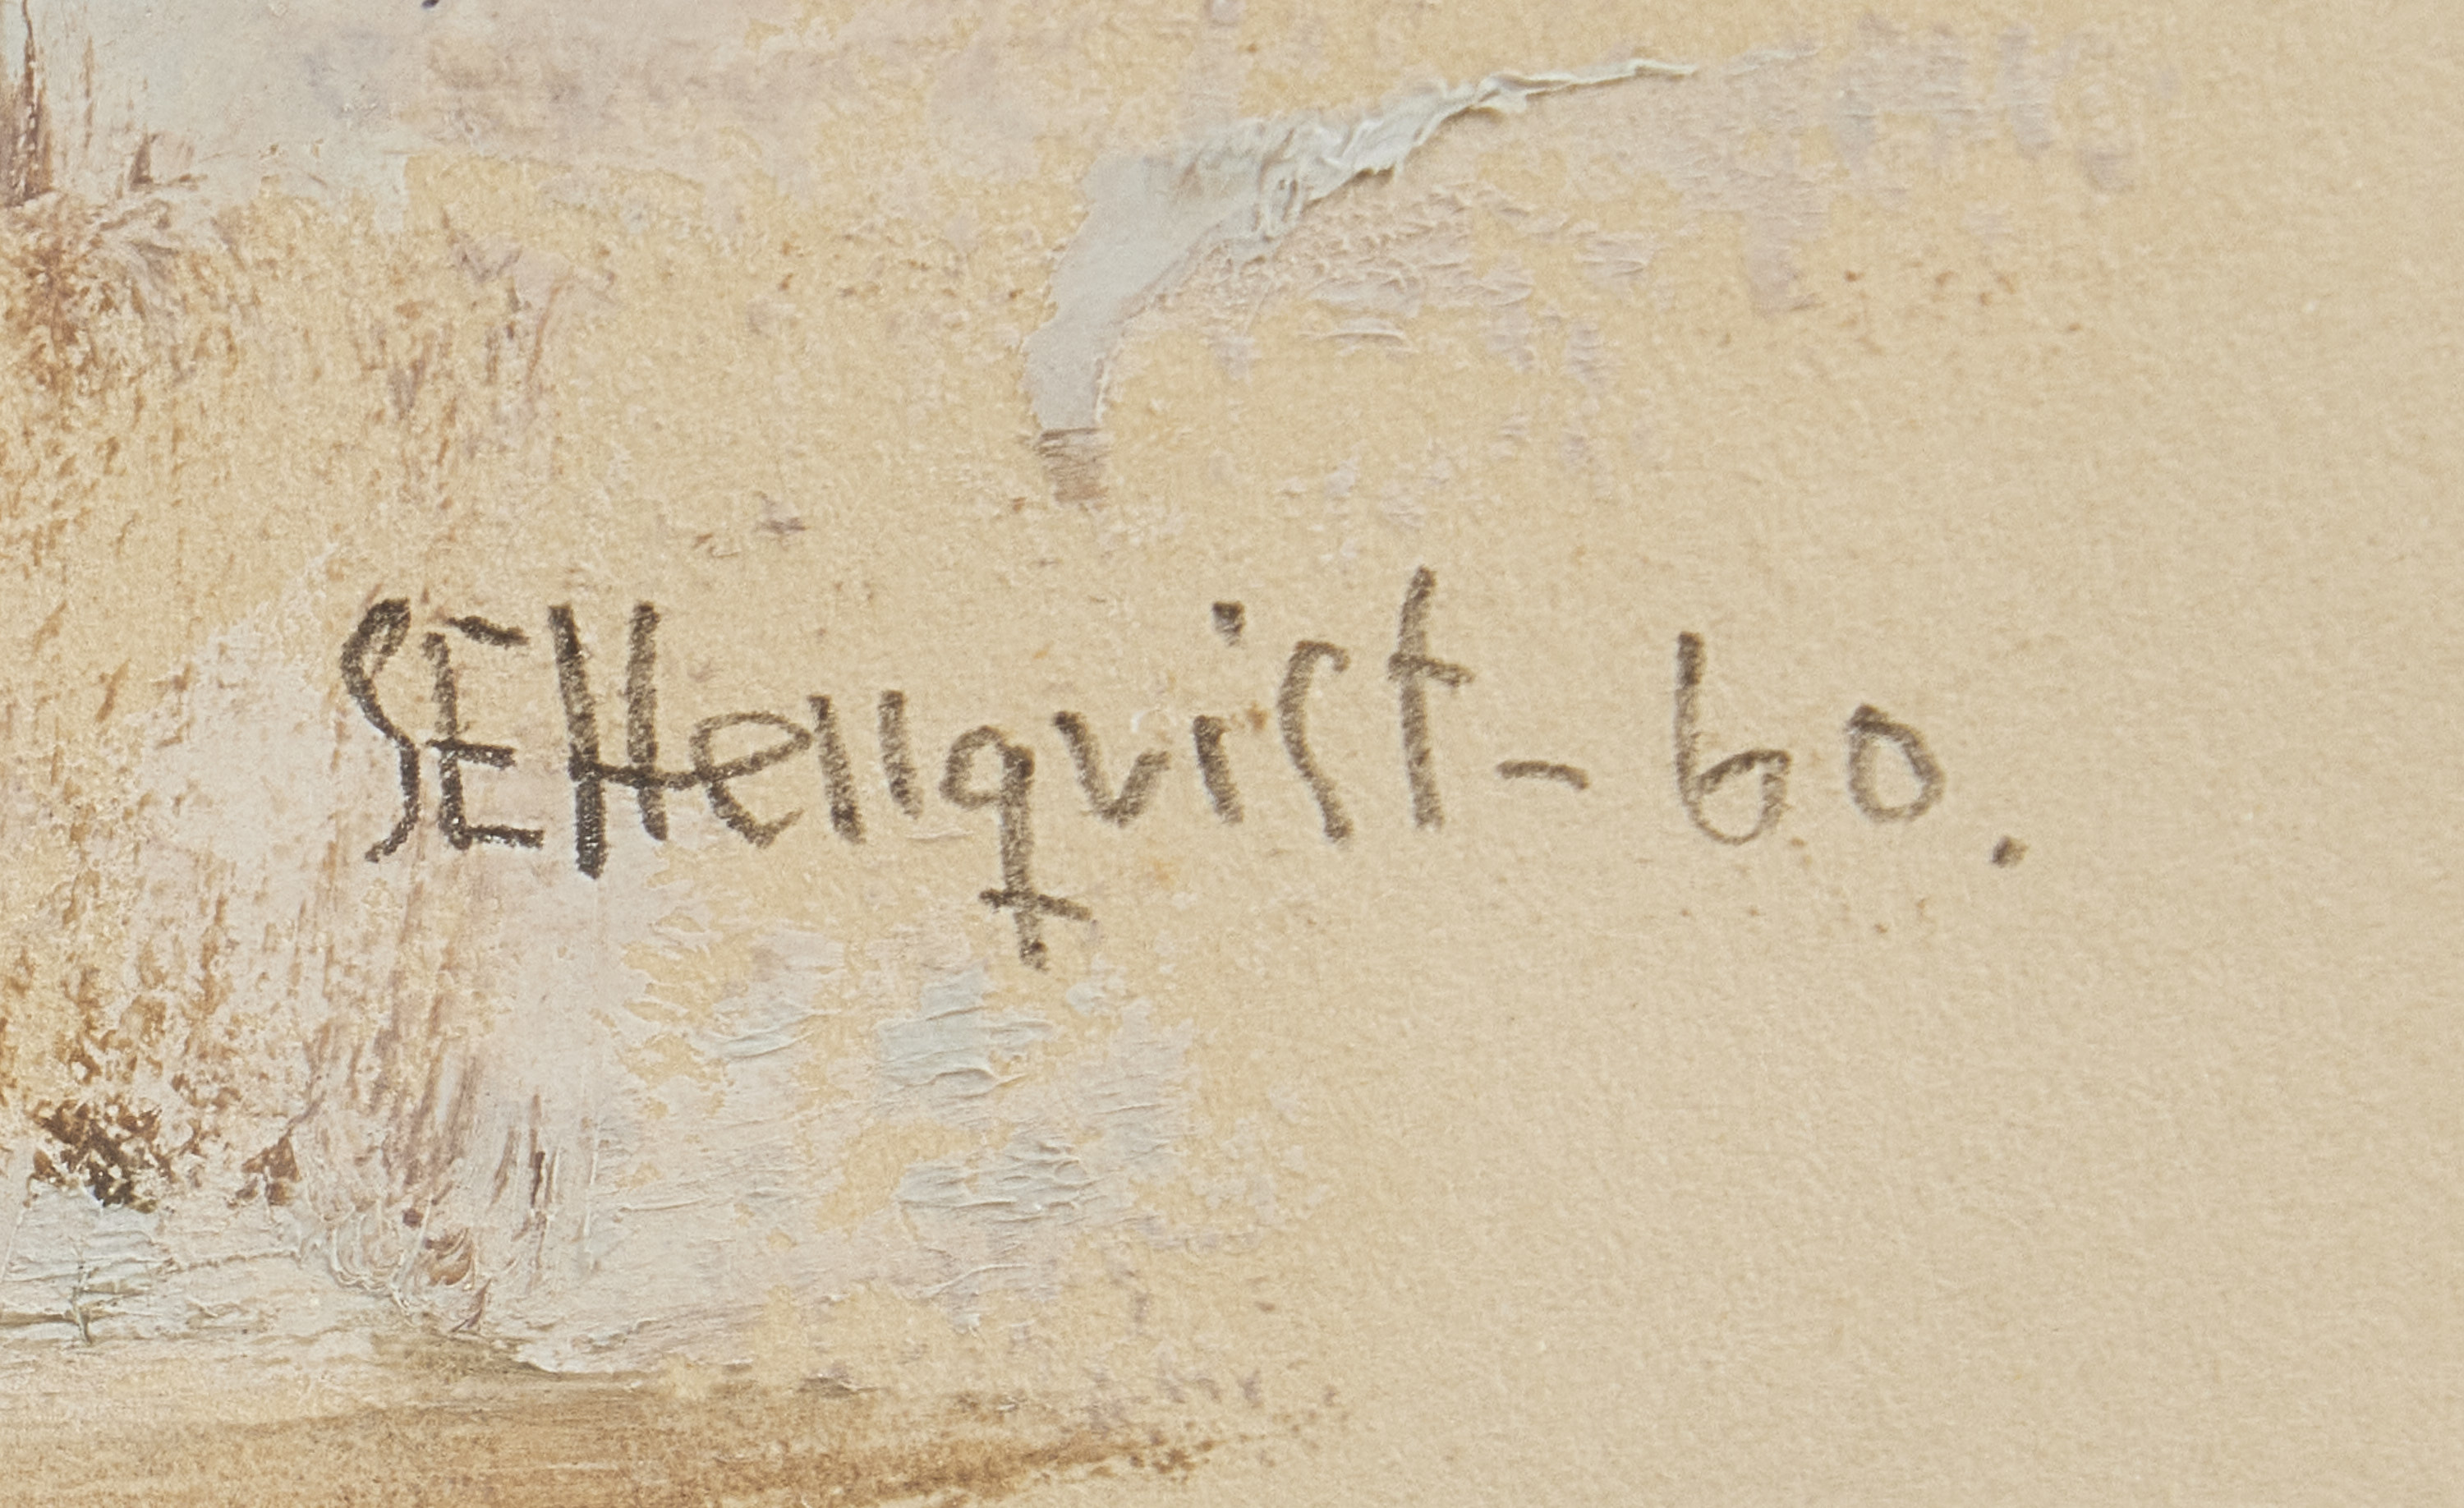 SEHellqvist - 60.